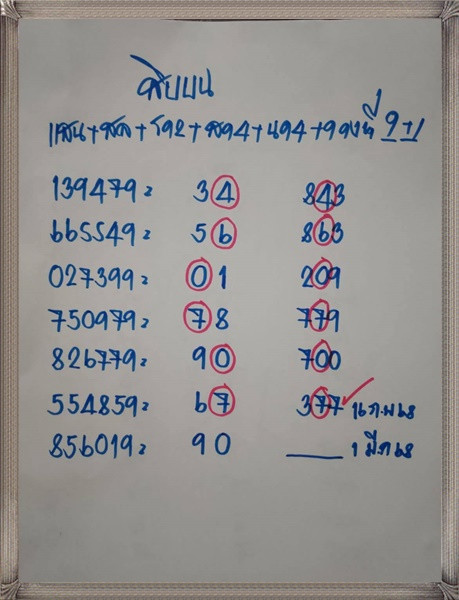 สิบบน
139479= 34 843
665549= 56 863
027399= 01 209
750979= 78 779
826779= 90 700
554859= 67 377 ✓ 16 ก.พ 68
856019= 90 ___ 1 มี.ค 68